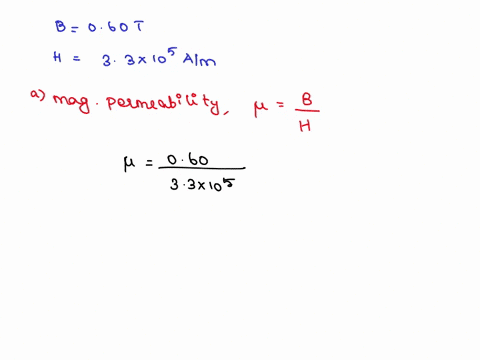 B = 0.60 T
H = 3.3×10⁵ A/m
a) mag. permeability, μ = B/H
μ = 0.60/3.3×10⁵